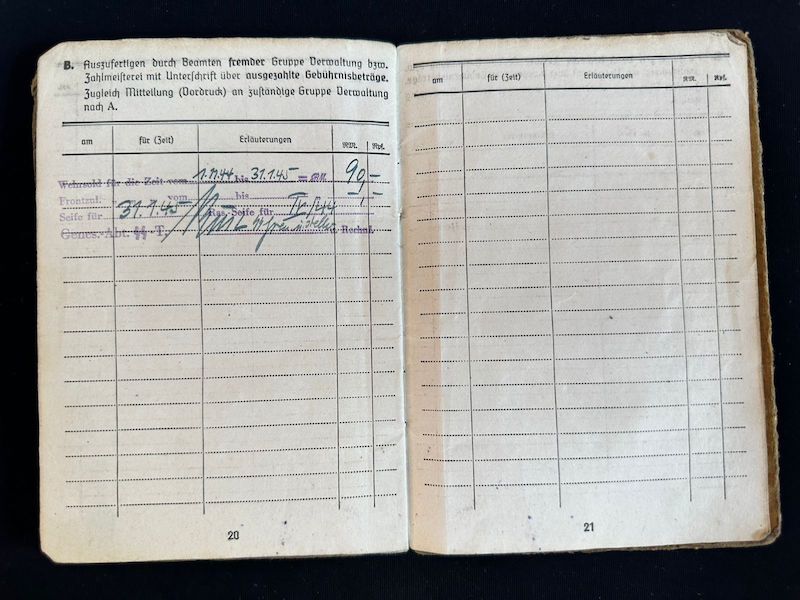 B. Auszufertigen durch Beamten fremder Gruppe Verwaltung bzw.
Zahlmeisterei mit Unterschrift über ausgezahlte Gebührnisbeträge.
Zugleich Mitteilung (Vordruck) an zuständige Gruppe Verwaltung
nach A.
am für (Zeit) Erläuterungen RM. Rpf.
Wehrsold für die Zeit vom 1.11.44 bis 31.1.45 = RM 90,-
Frontzul. vom bis -,-
Seife für 31.1.45 Ras.-Seife für
Genes.-Abt. SS -T. Rechnf.
20
am für (Zeit) Erläuterungen RM. Rpf.
21